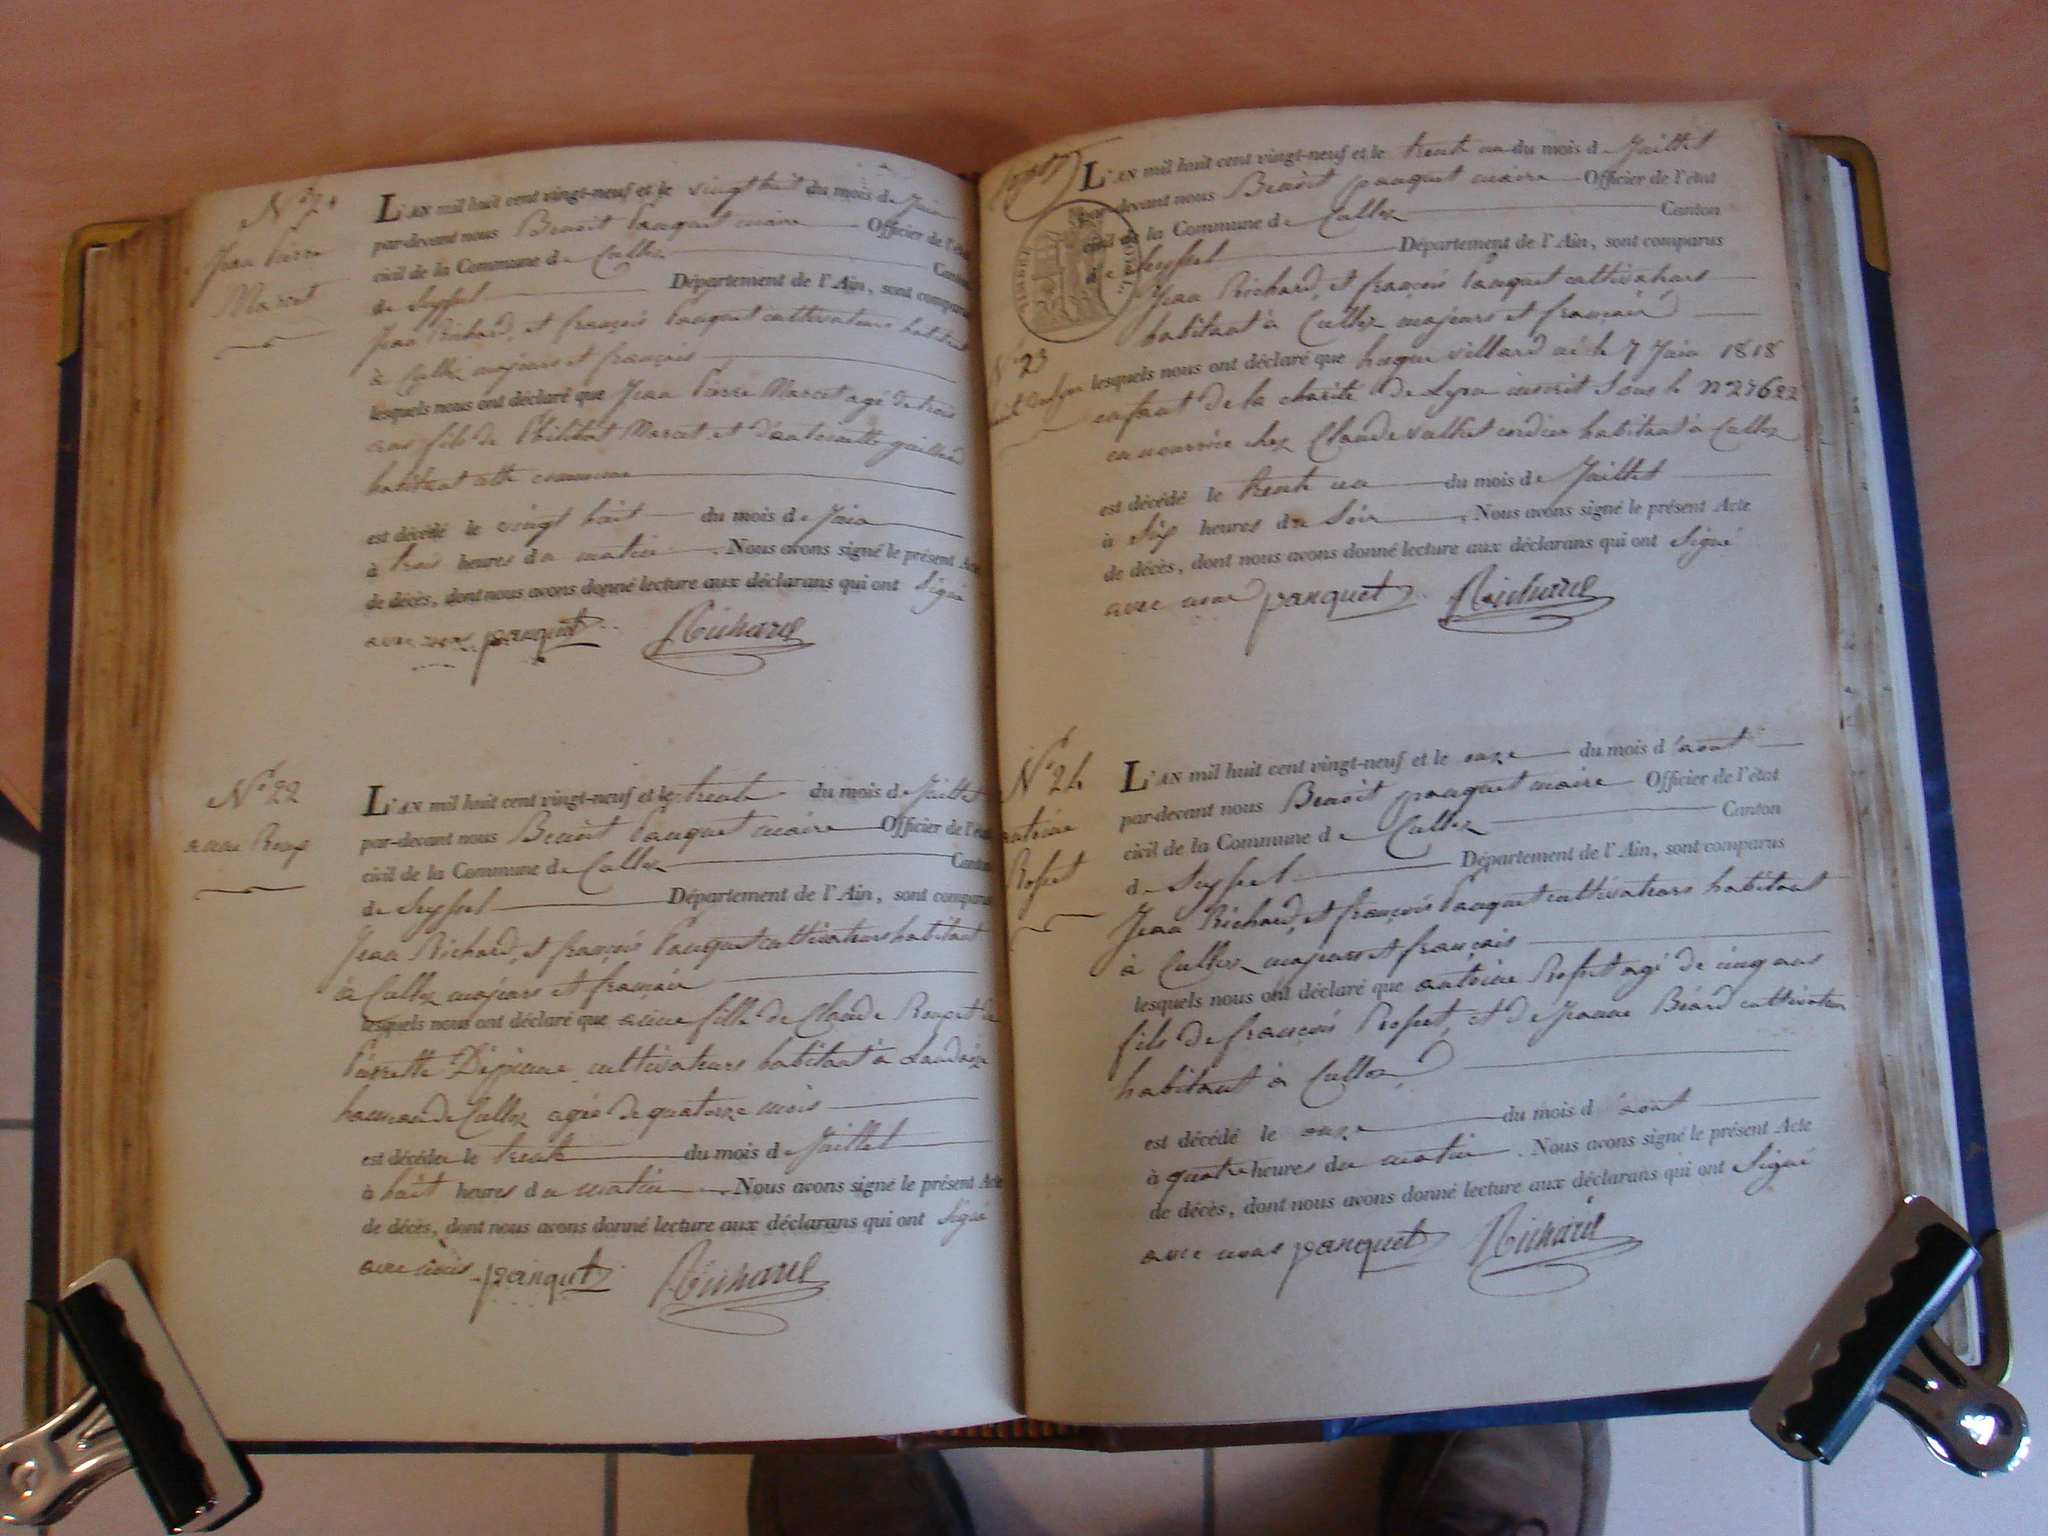 N° 21
Jean Pierre
Marcet
L'AN mil huit cent vingt-neuf et le vingt huit du mois de Juin
par-devant nous Benoit pauquet maire Officier de l'état
civil de la Commune de Culloz Canton
de Seyssel Département de l'Ain, sont comparus
Jean Richard, et françois pauquet cultivateurs habitant
à Culloz majeurs et français
lesquels nous ont déclaré que Jean Pierre Marcet agé de trois
ans fils de Philibert Marcet et d'antoinette
habitant
est décédé le vingt huit du mois de Juin
à trois heures du matin . Nous avons signé le présent Acte
de décès, dont nous avons donné lecture aux déclarans qui ont Signé
avec nous pauquet Richard
N° 22
L'AN mil huit cent vingt-neuf et le trente du mois de Juillet
par-devant nous Benoit pauquet maire Officier de l'état
civil de la Commune de Culloz Canton
de Seyssel Département de l'Ain, sont comparus
Jean Richard, et françois pauquet cultivateurs habitant
à Culloz majeurs et français
lesquels nous ont déclaré que fille de Claude
Pierrette cultivateurs habitant à
hameau de Culloz agée de quatorze mois
est décédée le trente du mois de Juillet
à huit heures du matin . Nous avons signé le présent Acte
de décès, dont nous avons donné lecture aux déclarans qui ont Signé
avec nous pauquet Richard
L'AN mil huit cent vingt-neuf et le trente un du mois de Juillet
par-devant nous Benoit pauquet maire Officier de l'état
civil de la Commune de Culloz Canton
de Seyssel Département de l'Ain, sont comparus
Jean Richard, et françois pauquet cultivateurs
habitant à Culloz majeurs et français
N° 23
lesquels nous ont déclaré que villard né le 7 Juin 1818
enfant de la charité de Lyon inscrit sous le n°
en nourrice chez Claude habitant à Culloz
est décédé le trente un du mois de Juillet
à Six heures du Soir . Nous avons signé le présent Acte
de décès, dont nous avons donné lecture aux déclarans qui ont Signé
avec nous pauquet Richard
N° 24
antoine
L'AN mil huit cent vingt-neuf et le onze du mois d'aout
par-devant nous Benoit pauquet maire Officier de l'état
civil de la Commune de Culloz Canton
de Seyssel Département de l'Ain, sont comparus
Jean Richard, et françois pauquet cultivateurs habitant
à Culloz majeurs et français
lesquels nous ont déclaré que antoine agé de cinq ans
fils de françois et de Jeanne Béard cultivateur
habitant à Culloz
est décédé le onze du mois d'aout
à quatre heures du matin . Nous avons signé le présent Acte
de décès, dont nous avons donné lecture aux déclarans qui ont Signé
avec nous pauquet Richard